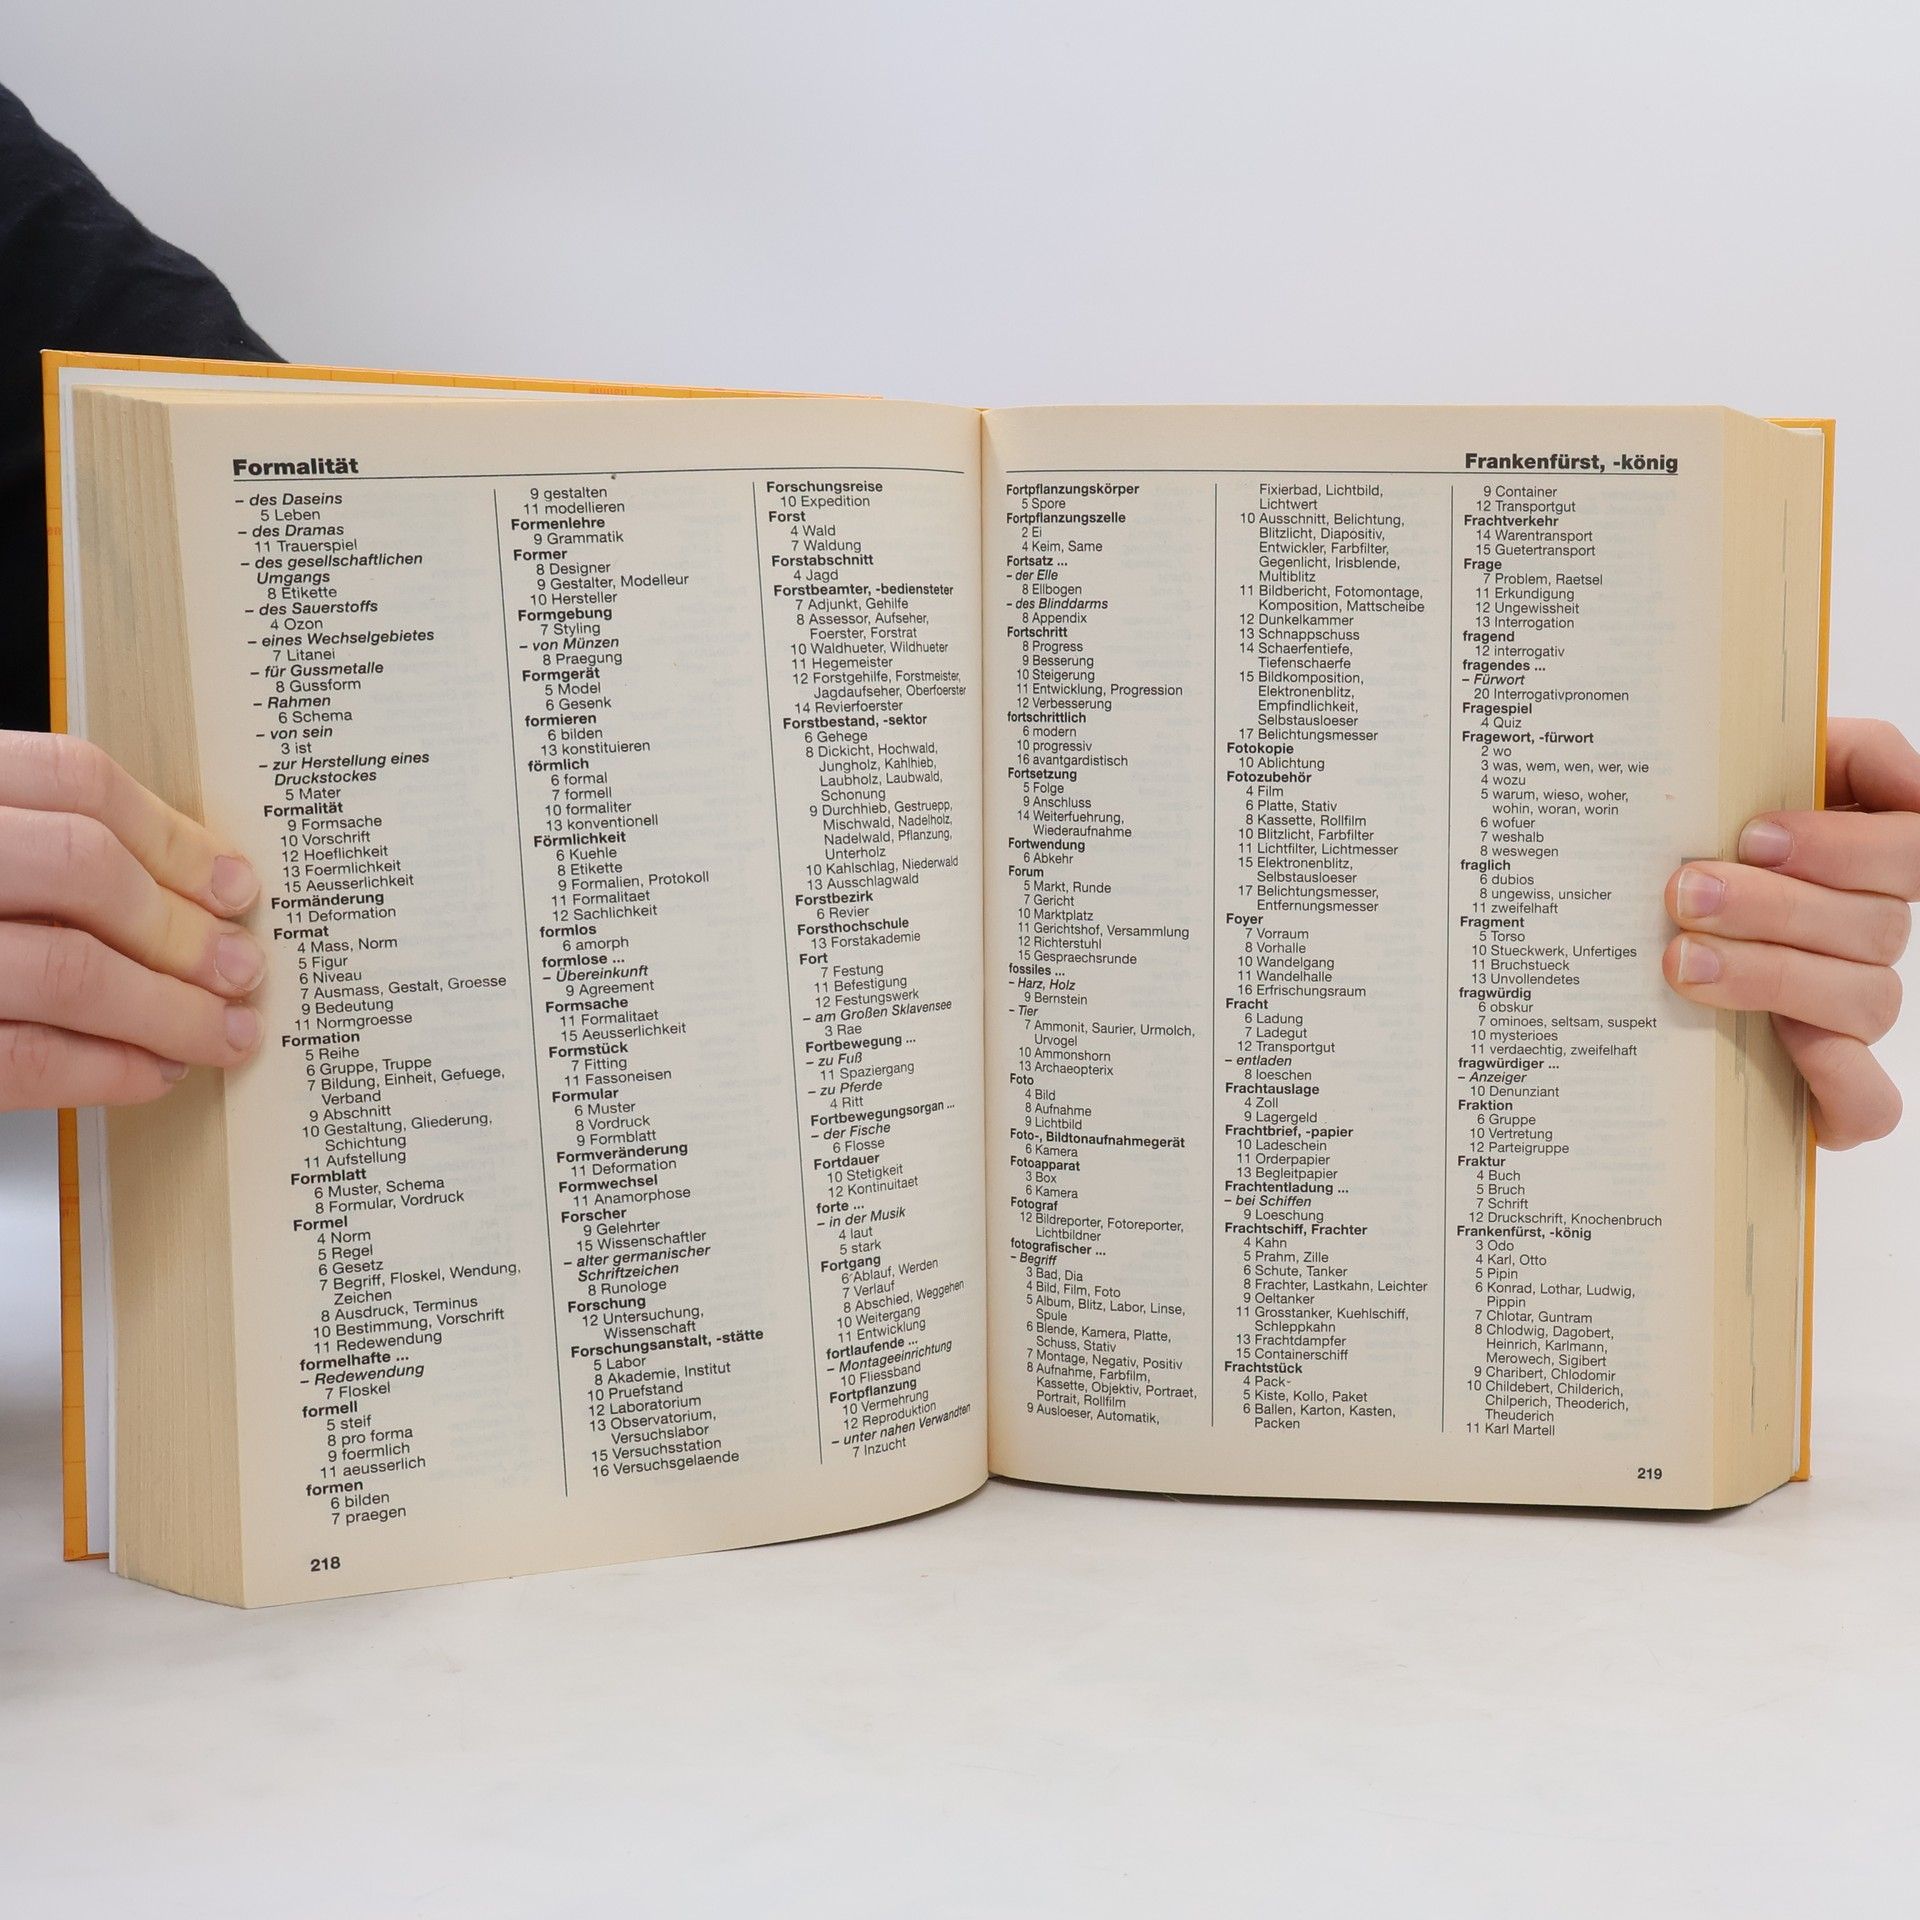 Formalität
– des Daseins
5 Leben
– des Dramas
11 Trauerspiel
– des gesellschaftlichen
Umgangs
8 Etikette
– des Sauerstoffs
4 Ozon
– eines Wechselgebietes
7 Litanei
– für Gussmetalle
8 Gussform
– Rahmen
6 Schema
– von sein
3 ist
– zur Herstellung eines
Druckstockes
5 Mater
Formalität
9 Formsache
10 Vorschrift
12 Hoeflichkeit
13 Foermlichkeit
15 Aeusserlichkeit
Formänderung
11 Deformation
Format
4 Mass, Norm
5 Figur
6 Niveau
7 Ausmass, Gestalt, Groesse
9 Bedeutung
11 Normgroesse
Formation
5 Reihe
6 Gruppe, Truppe
7 Bildung, Einheit, Gefuege,
Verband
9 Abschnitt
10 Gestaltung, Gliederung,
Schichtung
11 Aufstellung
Formblatt
6 Muster, Schema
8 Formular, Vordruck
Formel
4 Norm
5 Regel
6 Gesetz
7 Begriff, Floskel, Wendung,
Zeichen
8 Ausdruck, Terminus
10 Bestimmung, Vorschrift
11 Redewendung
formelhafte ...
– Redewendung
7 Floskel
formell
5 steif
8 pro forma
9 foermlich
11 aeusserlich
formen
6 bilden
7 praegen
218
9 gestalten
11 modellieren
Formenlehre
9 Grammatik
Former
8 Designer
9 Gestalter, Modelleur
10 Hersteller
Formgebung
7 Styling
– von Münzen
8 Praegung
Formgerät
5 Model
6 Gesenk
formieren
6 bilden
13 konstituieren
förmlich
6 formal
7 formell
10 formaliter
13 konventionell
Förmlichkeit
6 Kuehle
8 Etikette
9 Formalien, Protokoll
11 Formalitaet
12 Sachlichkeit
formlos
6 amorph
formlose ...
– Übereinkunft
9 Agreement
Formsache
11 Formalitaet
15 Aeusserlichkeit
Formstück
7 Fitting
11 Fassoneisen
Formular
6 Muster
8 Vordruck
9 Formblatt
Formveränderung
11 Deformation
Formwechsel
11 Anamorphose
Forscher
9 Gelehrter
15 Wissenschaftler
– alter germanischer
Schriftzeichen
8 Runologe
Forschung
12 Untersuchung,
Wissenschaft
Forschungsanstalt, -stätte
5 Labor
8 Akademie, Institut
10 Pruefstand
12 Laboratorium
13 Observatorium,
Versuchslabor
15 Versuchsstation
16 Versuchsgelaende
Forschungsreise
10 Expedition
Forst
4 Wald
7 Waldung
Forstabschnitt
4 Jagd
Forstbeamter, -bediensteter
7 Adjunkt, Gehilfe
8 Assessor, Aufseher,
Foerster, Forstrat
10 Waldhueter, Wildhueter
11 Hegemeister
12 Forstgehilfe, Forstmeister,
Jagdaufseher, Oberfoerster
14 Revierfoerster
Forstbestand, -sektor
6 Gehege
8 Dickicht, Hochwald,
Jungholz, Kahlhieb,
Laubholz, Laubwald,
Schonung
9 Durchhieb, Gestruepp,
Mischwald, Nadelholz,
Nadelwald, Pflanzung,
Unterholz
10 Kahlschlag, Niederwald
13 Ausschlagwald
Forstbezirk
6 Revier
Forsthochschule
13 Forstakademie
Fort
7 Festung
11 Befestigung
12 Festungswerk
– am Großen Sklavensee
3 Rae
Fortbewegung ...
– zu Fuß
11 Spaziergang
– zu Pferde
4 Ritt
Fortbewegungsorgan ...
– der Fische
6 Flosse
Fortdauer
10 Stetigkeit
12 Kontinuitaet
forte ...
– in der Musik
4 laut
5 stark
Fortgang
6 Ablauf, Werden
7 Verlauf
8 Abschied, Weggehen
10 Weitergang
11 Entwicklung
fortlaufende ...
– Montageeinrichtung
10 Fliessband
Fortpflanzung
10 Vermehrung
12 Reproduktion
– unter nahen Verwandten
7 Inzucht
Frankenfürst, -könig
Fortpflanzungskörper
5 Spore
Fortpflanzungszelle
2 Ei
4 Keim, Same
Fortsatz ...
– der Elle
8 Ellbogen
– des Blinddarms
8 Appendix
Fortschritt
8 Progress
9 Besserung
10 Steigerung
11 Entwicklung, Progression
12 Verbesserung
fortschrittlich
6 modern
10 progressiv
16 avantgardistisch
Fortsetzung
5 Folge
9 Anschluss
14 Weiterfuehrung,
Wiederaufnahme
Fortwendung
6 Abkehr
Forum
5 Markt, Runde
7 Gericht
10 Marktplatz
11 Gerichtshof, Versammlung
12 Richterstuhl
15 Gespraechsrunde
fossiles ...
– Harz, Holz
9 Bernstein
– Tier
7 Ammonit, Saurier, Urmolch,
Urvogel
10 Ammonshorn
13 Archaeopterix
Foto
4 Bild
8 Aufnahme
9 Lichtbild
Foto-, Bildtonaufnahmegerät
6 Kamera
Fotoapparat
3 Box
6 Kamera
Fotograf
12 Bildreporter, Fotoreporter,
Lichtbildner
fotografischer ...
– Begriff
3 Bad, Dia
4 Bild, Film, Foto
5 Album, Blitz, Labor, Linse,
Spule
6 Blende, Kamera, Platte,
Schuss, Stativ
7 Montage, Negativ, Positiv
8 Aufnahme, Farbfilm,
Kassette, Objektiv, Portraet,
Portrait, Rollfilm
9 Ausloeser, Automatik,
Fixierbad, Lichtbild,
Lichtwert
10 Ausschnitt, Belichtung,
Blitzlicht, Diapositiv,
Entwickler, Farbfilter,
Gegenlicht, Irisblende,
Multiblitz
11 Bildbericht, Fotomontage,
Komposition, Mattscheibe
12 Dunkelkammer
13 Schnappschuss
14 Schaerfentiefe,
Tiefenschaerfe
15 Bildkomposition,
Elektronenblitz,
Empfindlichkeit,
Selbstausloeser
17 Belichtungsmesser
Fotokopie
10 Ablichtung
Fotozubehör
4 Film
6 Platte, Stativ
8 Kassette, Rollfilm
10 Blitzlicht, Farbfilter
11 Lichtfilter, Lichtmesser
15 Elektronenblitz,
Selbstausloeser
17 Belichtungsmesser,
Entfernungsmesser
Foyer
7 Vorraum
8 Vorhalle
10 Wandelgang
11 Wandelhalle
16 Erfrischungsraum
Fracht
6 Ladung
7 Ladegut
12 Transportgut
– entladen
8 loeschen
Frachtauslage
4 Zoll
9 Lagergeld
Frachtbrief, -papier
10 Ladeschein
11 Orderpapier
13 Begleitpapier
Frachtentladung ...
– bei Schiffen
9 Loeschung
Frachtschiff, Frachter
4 Kahn
5 Prahm, Zille
6 Schute, Tanker
8 Frachter, Lastkahn, Leichter
9 Oeltanker
11 Grosstanker, Kuehlschiff,
Schleppkahn
13 Frachtdampfer
15 Containerschiff
Frachtstück
4 Pack
5 Kiste, Kollo, Paket
6 Ballen, Karton, Kasten,
Packen
9 Container
12 Transportgut
Frachtverkehr
14 Warentransport
15 Guetertransport
Frage
7 Problem, Raetsel
11 Erkundigung
12 Ungewissheit
13 Interrogation
fragend
12 interrogativ
fragendes ...
– Fürwort
20 Interrogativpronomen
Fragespiel
4 Quiz
Fragewort, -fürwort
2 wo
3 was, wem, wen, wer, wie
4 wozu
5 warum, wieso, woher,
wohin, woran, worin
6 wofuer
7 weshalb
8 weswegen
fraglich
6 dubios
8 ungewiss, unsicher
11 zweifelhaft
Fragment
5 Torso
10 Stueckwerk, Unfertiges
11 Bruchstueck
13 Unvollendetes
fragwürdig
6 obskur
7 ominoes, seltsam, suspekt
10 mysterioes
11 verdaechtig, zweifelhaft
fragwürdiger ...
– Anzeiger
10 Denunziant
Fraktion
6 Gruppe
10 Vertretung
12 Parteigruppe
Fraktur
4 Buch
5 Bruch
7 Schrift
12 Druckschrift, Knochenbruch
Frankenfürst, -könig
3 Odo
4 Karl, Otto
5 Pipin
6 Konrad, Lothar, Ludwig,
Pippin
7 Chlotar, Guntram
8 Chlodwig, Dagobert,
Heinrich, Karlmann,
Merowech, Sigibert
9 Charibert, Chlodomir
10 Childebert, Childerich,
Chilperich, Theoderich,
Theuderich
11 Karl Martell
219